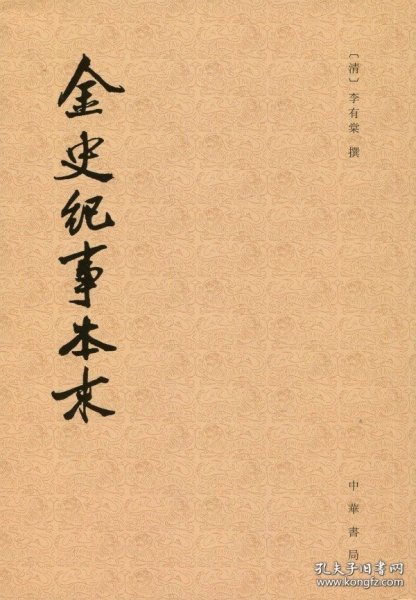 〔清〕李有棠 撰
金史紀事本末
中華書局
孔夫子旧书网
www.kongfz.com